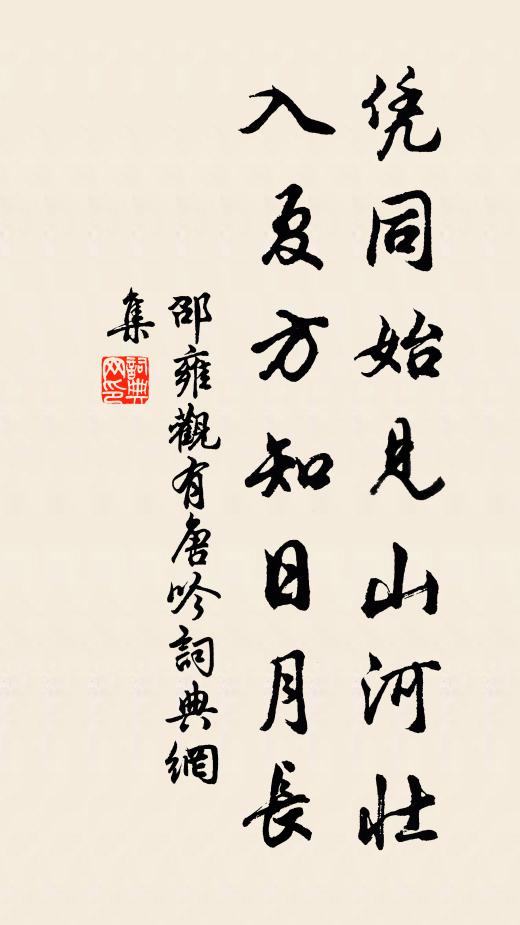 凭同始見山河壯
入夏方知日月長
邵雍觀有唐吟詞典網
集
詞典网印